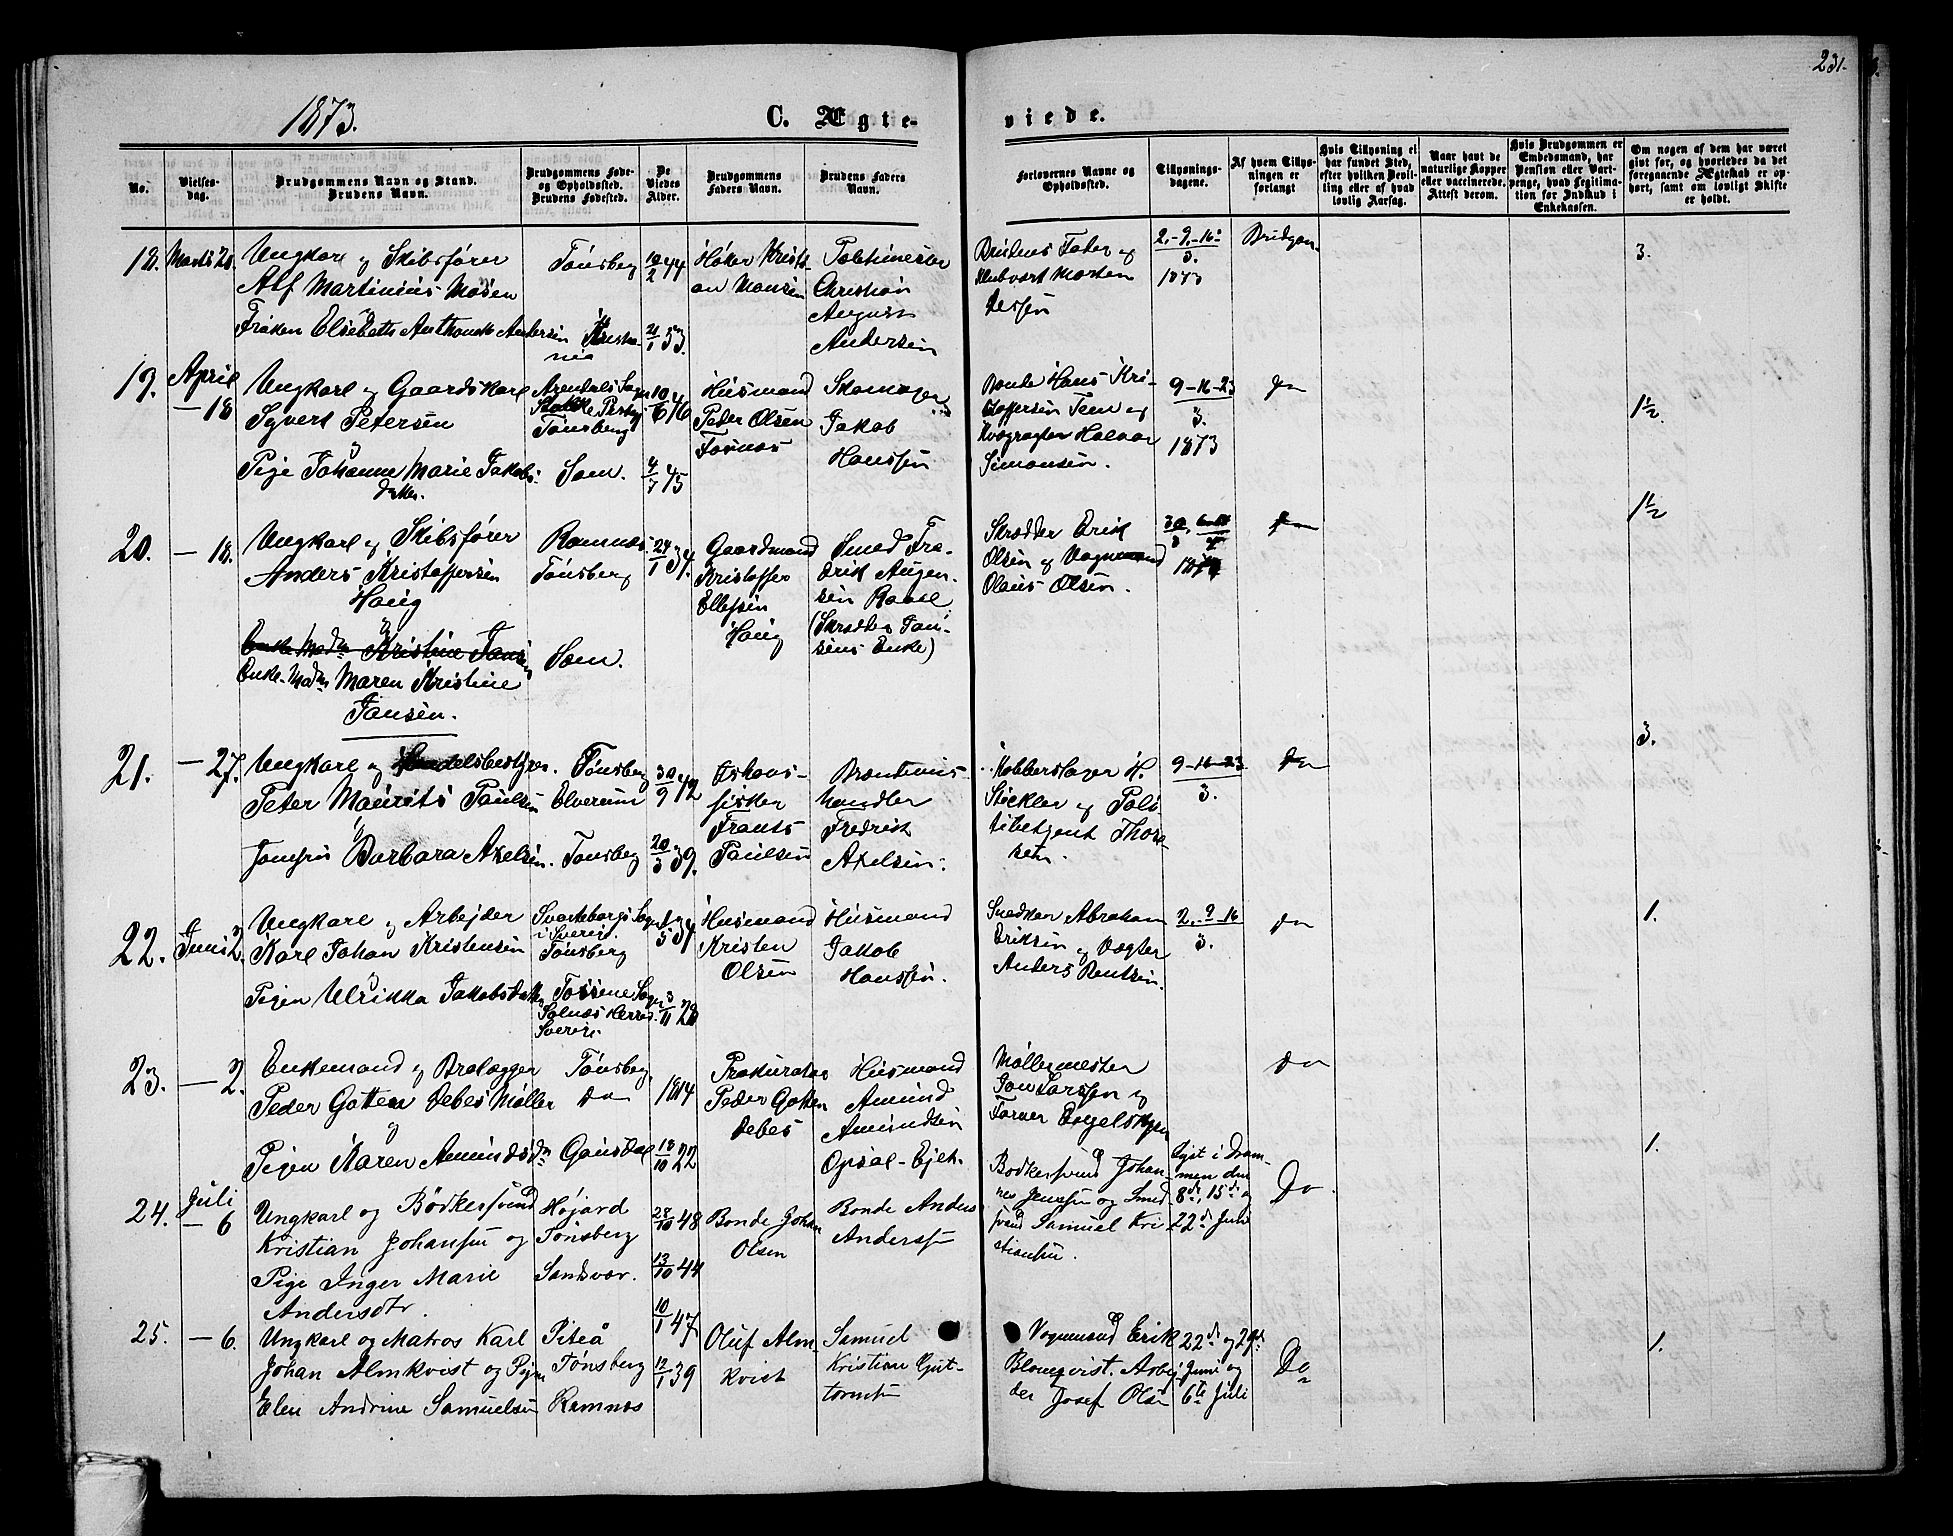 231.
1873.
C. Ægte-
viede.
No.
Vielses-
dag.
Brudgommens Navn og Stand.
Brudens Navn.
Brudgommens Føde-
og Opholdssted.
Brudens Fødested.
De
Viedes
Alder.
Brudgommens
Faders Navn.
Brudens Faders
Navn.
Forlovernes Navne og
Opholdssted.
Tillysnings-
dagene.
Af hvem Tillys-
ningen er
forlangt
Hvis Tillysning ei
har fundet Sted,
efter hvilken Bevil-
ling eller af hvad
lovlig Aarsag.
Naar havt de
naturlige Kopper
eller vaccinerede.
Attest derom.
Hvis Brudgommen er
Embedsmand, har
Pension eller Vart-
penge, hvad Legitima-
tion for Indskud i
Enkekassen.
Om nogen af dem har været
gift før, og hvorledes da det
foregaaende Ægteskab er op-
hørt, samt om lovligt Skifte
er holdt.
18. Marts 20.
Ungkarl og Skibsfører
Alf Martinius
Frøken Elsebeth Anthonette Andersen
Tønsberg
Kristia-
nia
10/2 44
21/1 53.
Høker Kristi-
an Hansen
Christian
August
Andersen
Brudens Fader og
Morten
2.-9.-16.
3.
1873
Brudgom.
3.
19. April
— 18
Ungkarl og Gaardskarl
Syvert Petersen
og
Pige Johanne Marie Jakobs-
datter.
Arendals Sogn
Tønsberg
Sem.
4/7 45
Husmand
Peder Olsen
Fosnæs
Skomager
Jakob
Hanssen
Bonde Hans Kri-
stoffersen Tem og
Halvor
Simonsen.
9-16-23
3.
1873
Do
1½.
20. — 18.
Ungkarl og Skibsfører
Anders Kristoffersen
Haug
og
Enke Mad. Kristine Jansen
Enke-Mad. Maren Kristine
Jansen.
Ramnæs
Tønsberg
Sem.
24/1 37.
Gaardmand
Kristoffer
Ellefsen
Haug
Smed Fre-
derik Augen-
sen
(Skrædder Jan-
sens Enke)
Skrædder Erik
Olsen og Vognmand
Olaus Olsen.
Do
1½
21. — 27.
Ungkarl og Handelsbestyrer.
Peter Maurits Paulsen
og
Jomfru Barbara Axelsen.
Tønsberg
Elverum
Tønsberg
30/9 42
20/3 39.
Frants
Paulsen
Brændeviins-
handler
Fredrik
Axelsen.
Kobberslager H.
Stickler og Poli-
tibetjent Thore-
sen.
9-16-23
3.
Do
3.
22. Juni 2.
Ungkarl og Arbejder
Karl Johan Kristensen
og
Pigen Ulrikka Jakobsdatter
Svarteborgs Sogn
i Sverige.
Tønsberg
Tossene Sogn
Sverige
Husmand
Kristen
Olsen
Husmand
Jakob
Hanssen.
Snedker Abraham
Eriksen og Vægter
Anders Bentsen.
2.-9-16
3.
Do
1.
23. — 2.
Enkemand og Brolægger
Peder Gotten Debes Møller
og
Pigen Karen Amundsdtr
Tønsberg
Do
Gausdal
1814
18/10 22
Prokurator
Peder Gotten
Debes
Husmand
Amund
Amundsen
Opsal-Ejet.
Møllermester
Jon Larssen og
Farver Engelskjøn
Do
1.
24. Juli
— 6
Ungkarl og Bødkersvend
Kristian Johansen og
Pige Inger Marie
Andersdtr.
Højord
Tønsberg
Sandsvær.
28/10 48
13/10 44
Bonde Johan
Olsen
Bonde Anders
Anderssen
Bødkersvend Johan-
nes Jenssen og Smed-
svend Samuel Kri-
stiansen.
Lyst i Dram-
men den
8de, 15de og
22de Juni
Do
25. — 6.
Ungkarl og Matros Karl
Johan Almkvist og Pigen
Elen Andrine Samuelsen
Piteå
Tønsberg
Ramnæs
10/1 47
12/1 39
Oluf Alm-
kvist
Samuel
Kristian Gut-
tormsen
Vognmand Erik
Blomqvist. Arbej-
der Josef Olsen
22de og 29de
Juni og
6te Juli
Do
1.